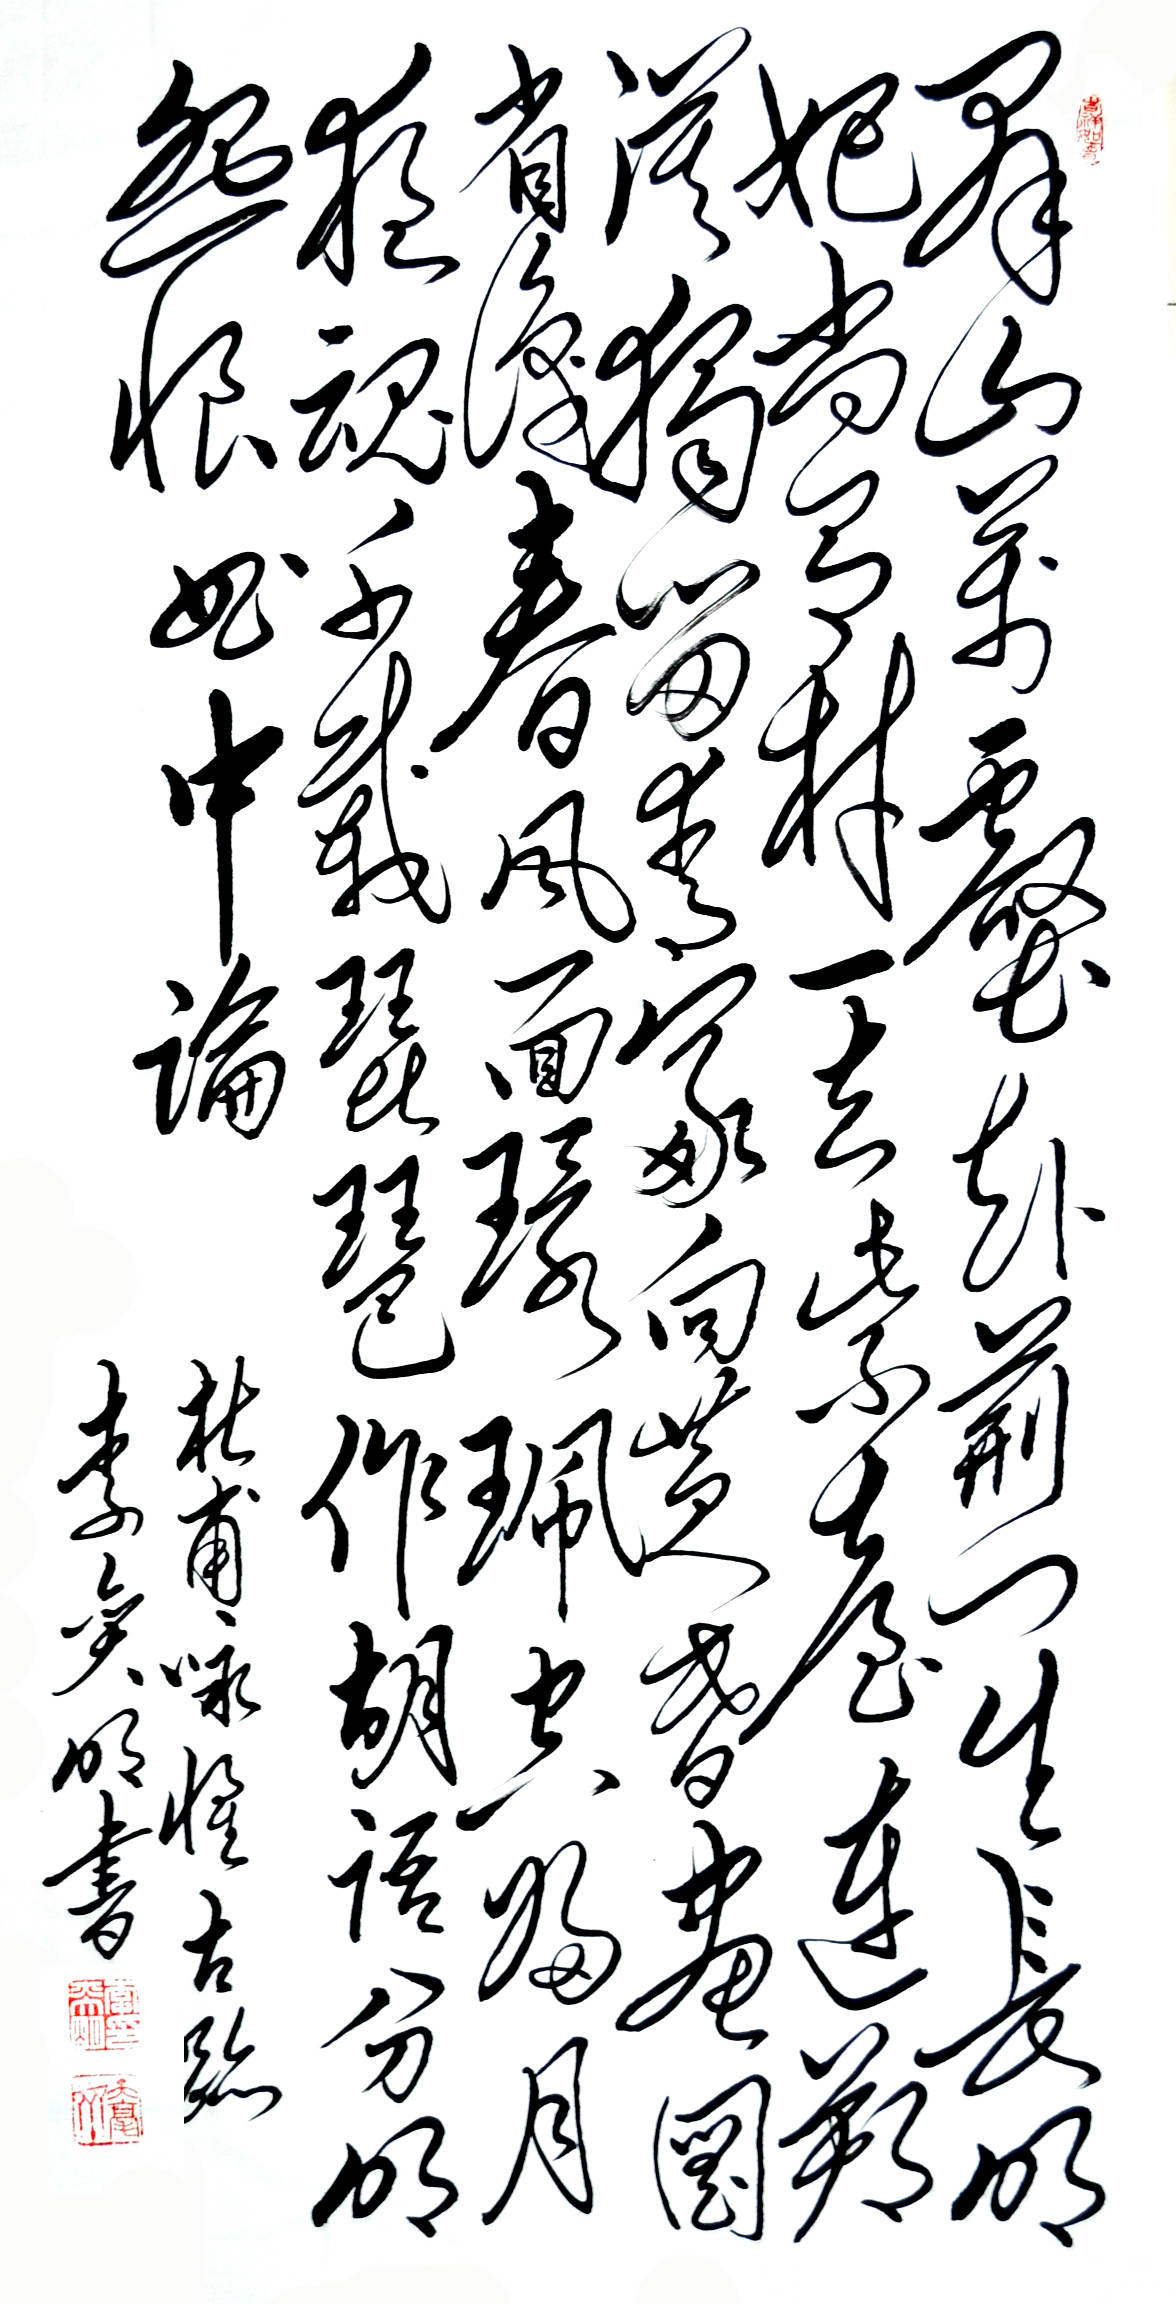 羣山萬壑赴荊門生長明
妃尚有村一去紫臺連朔
漠獨留青冢向黃昏畫圖
省識春風面環珮空歸月
夜魂千載琵琶作胡語分明
怨恨曲中論
杜甫咏懷古跡
李明書